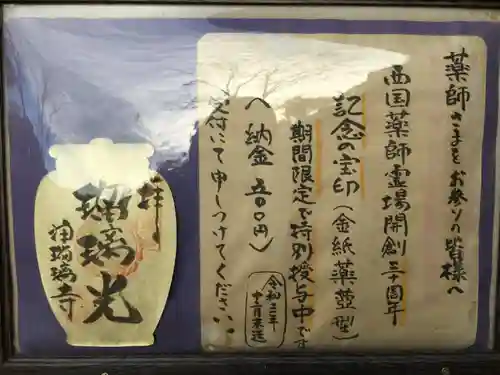 薬師さまをお参りの皆様へ
西国薬師霊場開創三十周年
記念の宝印(金紙薬壺型)
期間限定で特別授与中です
(納金 五〇〇円)
受付にて申しつけてください。
令和二年
十二月末迄
拝
瑠璃光
浄瑠璃寺